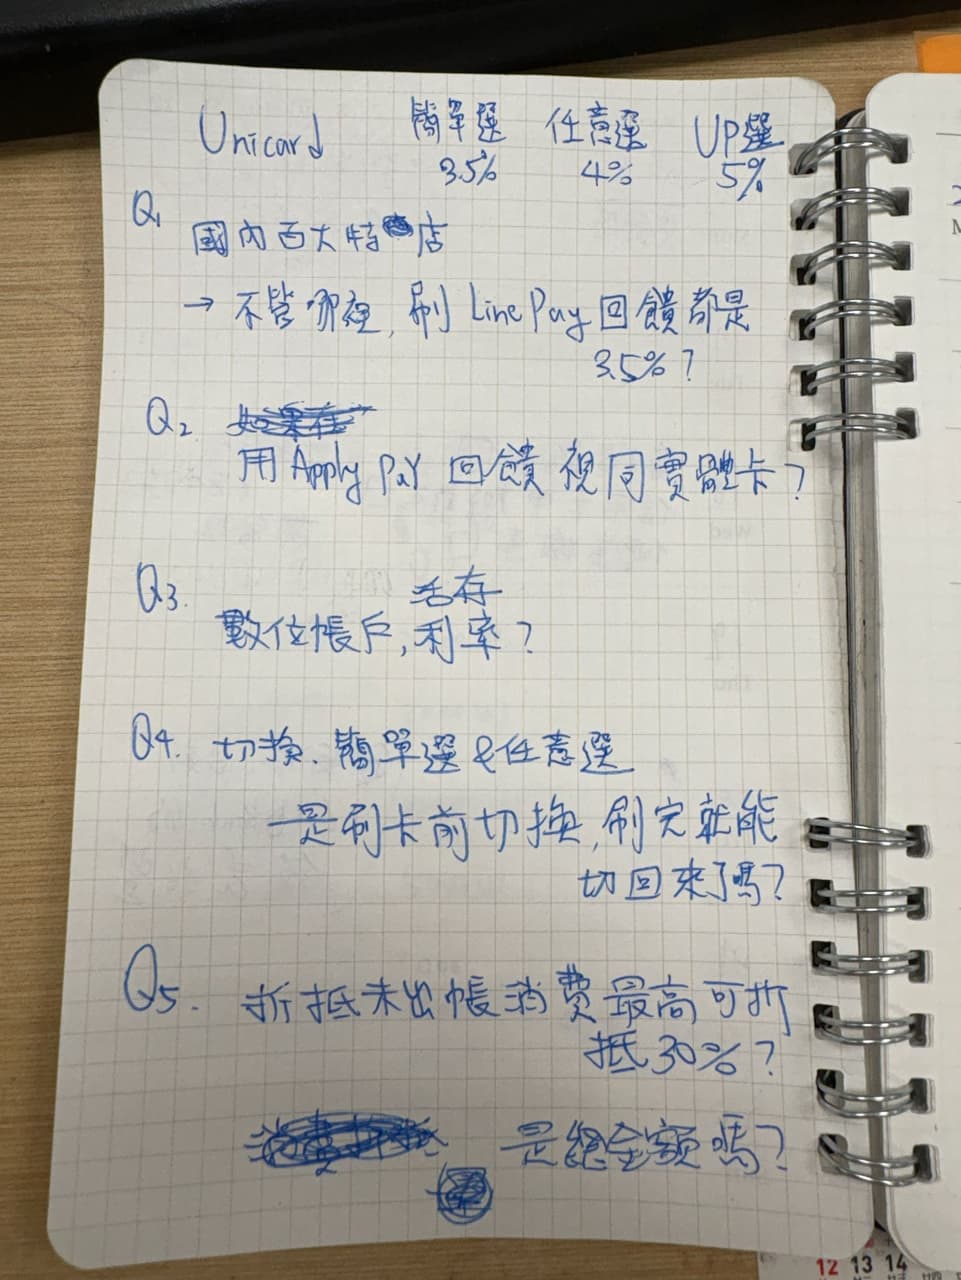 Unicard 簡單選 任意選 UP選
3.5% 4% 5%
Q1
國內百大特店
→ 不管哪裡, 刷 Line Pay 回饋都是
3.5%?
Q2
用 Apply Pay 回饋視同實體卡?
Q3. 活存
數位帳戶, 利率?
Q4. 切換. 簡單選&任意選
是刷卡前切換, 刷完就能
切回來了嗎?
Q5. 折抵未出帳消費最高可折
抵30%?
是總金額嗎?
12 13 14